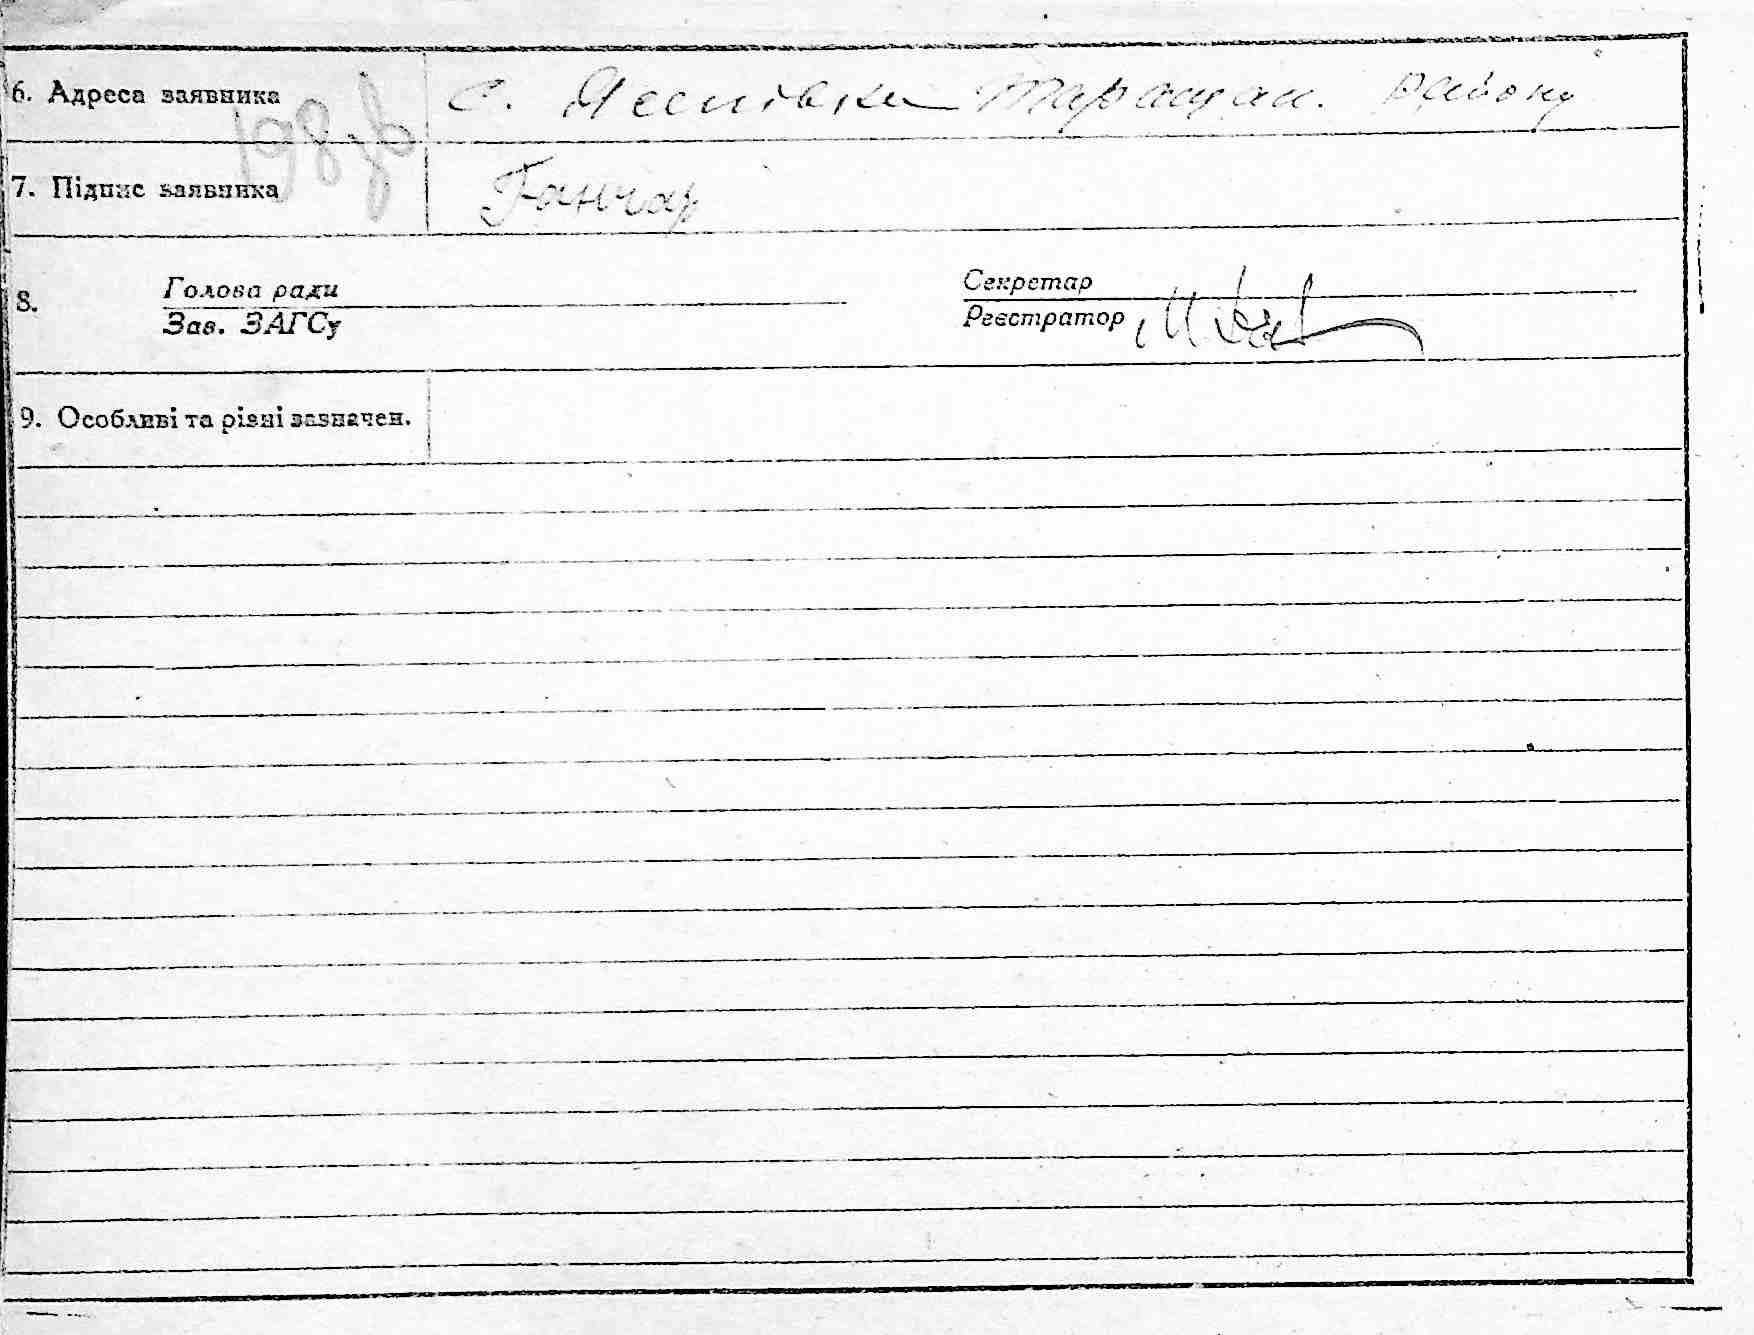 6. Адреса заявника с. Лесівка Таращан. району
7. Підпис заявника Гончар
8. Голова ради Секретар
Зав. ЗАГСу Реєстратор
9. Особливі та різні зазначен.